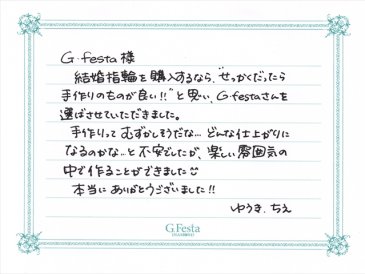 G.festa 様
結婚指輪を購入するなら、"せっかくだったら
手作りのものが良い!!"と思い、G.festaさんを
選ばさせていただきました。
手作りってむずかしそうだな…どんな仕上がりに
なるのかな…と不安でしたが、楽しい雰囲気の
中で作ることができました☺
本当にありがとうございました!!
ゆうき、ちえ
G.Festa